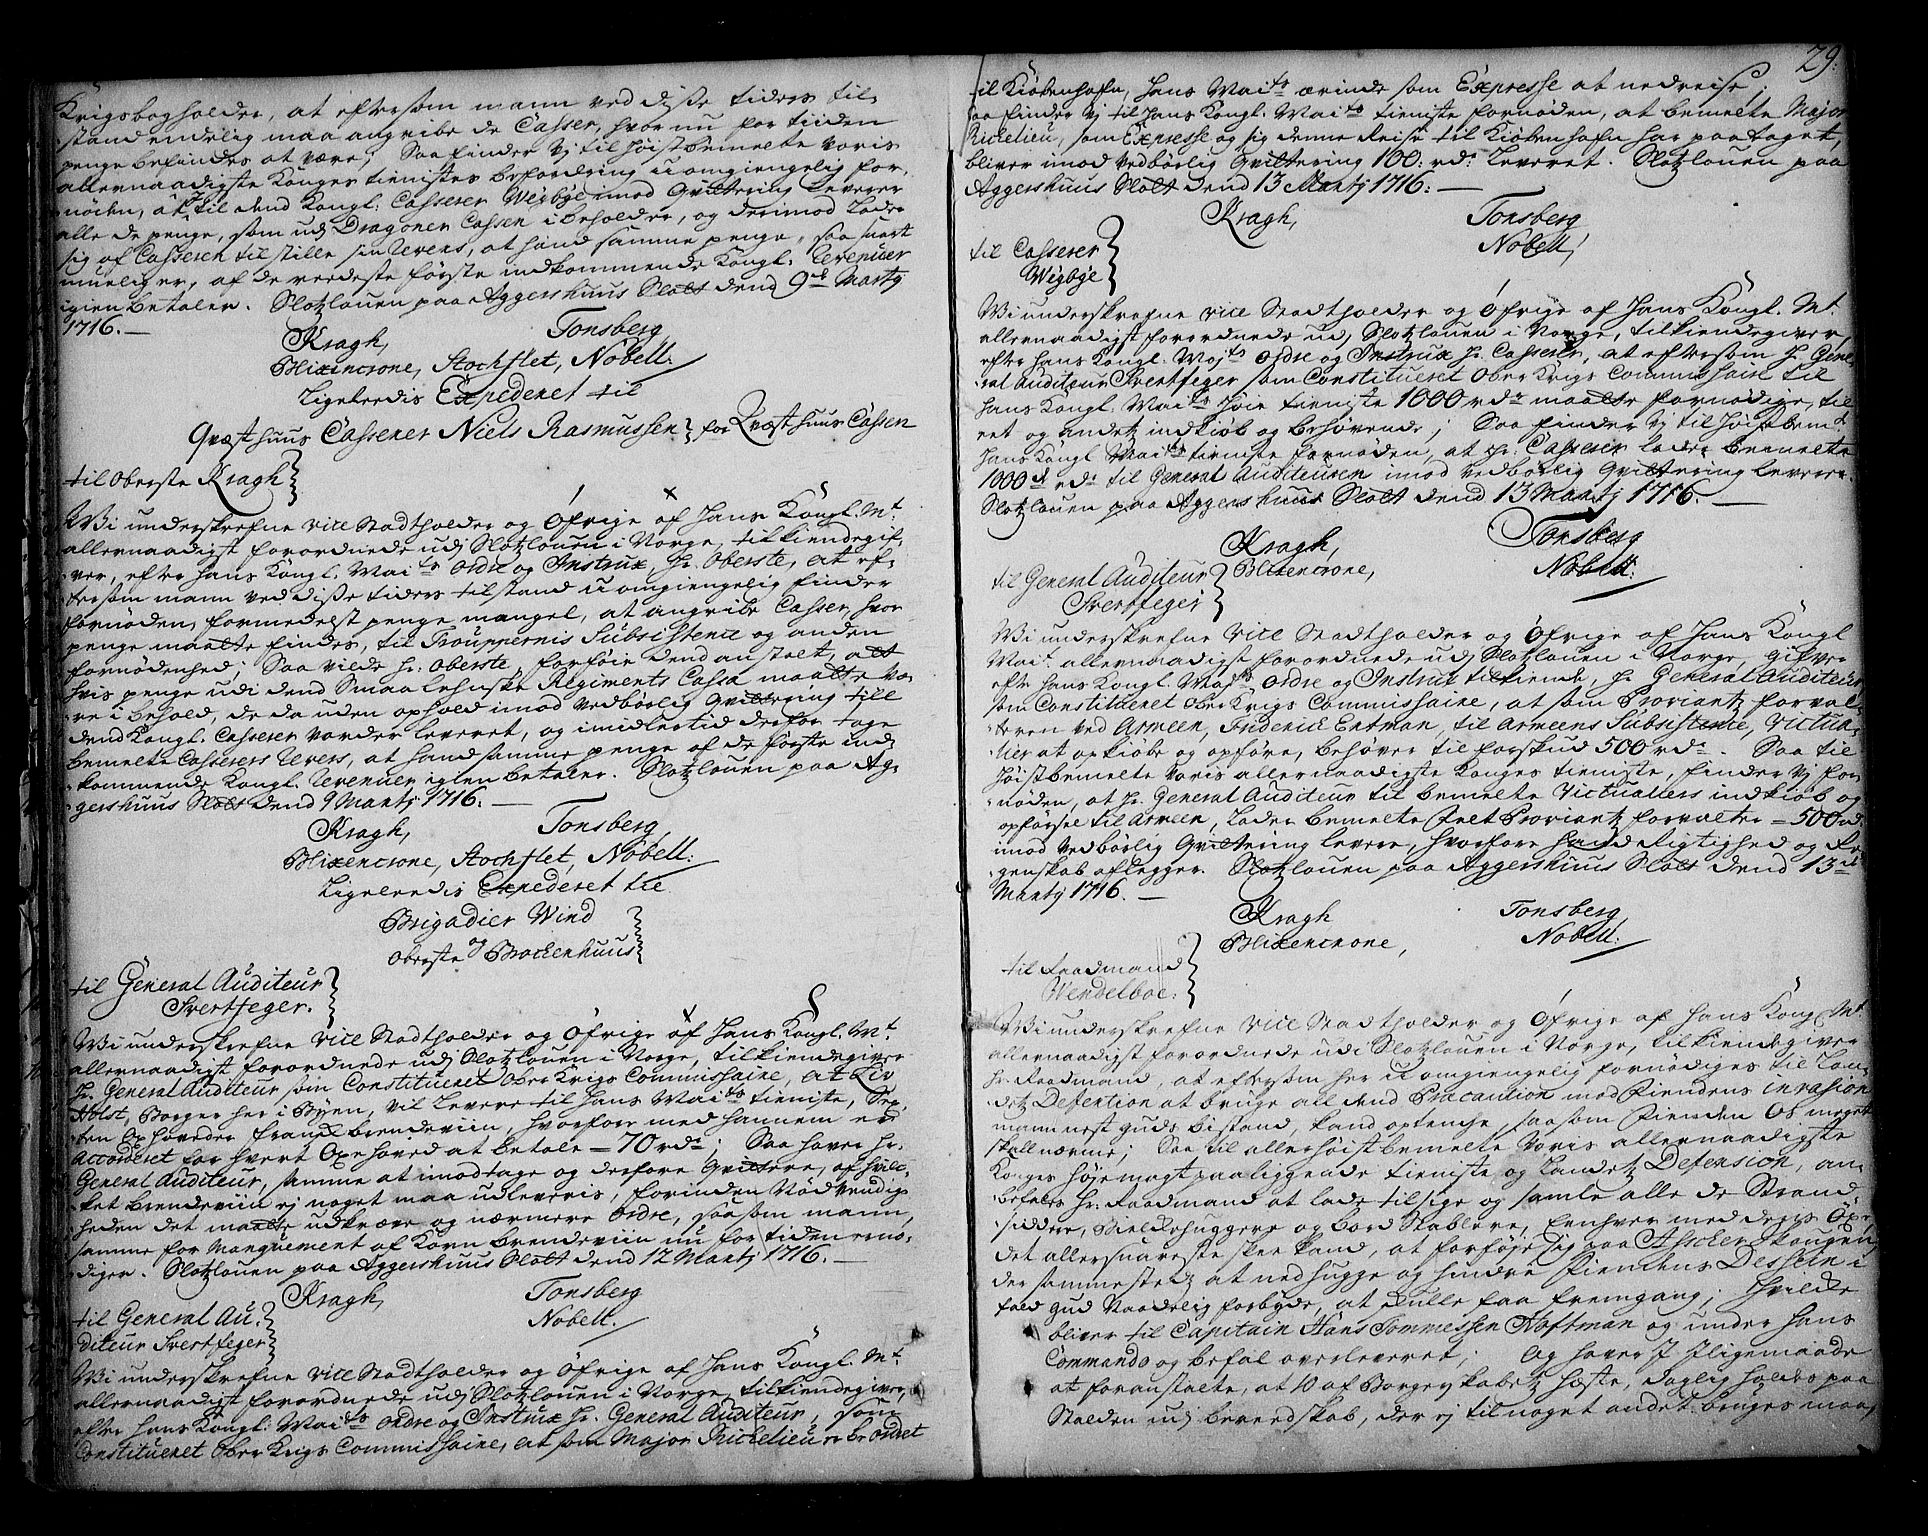 Krigsbogholder, at eftersom mann ved disse tiders til-
stand endelig maa angribe de Casser, hvor nu for tiiden
penge befindes at være; Saa finder Vj til høistbemelte voris
allernaadigste Konges tienistes befordring uomgiengelig for-
nøden, at til dend Kongl: Casserer Wigbye, mod Qvittering Leverer
alle de penge, som udj Dragoner Cassen i beholder, og derimod Lader
sig af Casseren tilstille sin Revers, at hand samme penge, saa snart
mueligt er, af de reedeste første indkommende Kongl: Revenuer
igien betaler. Slotzlouen paa Aggershuus Slott dend 9de Martj
1716.
Kragh, Tonsberg,
Blixencrone, Stochflet, Nobell.
Ligeleedis Expederet til
Qvæsthuus Casserer Niels Rasmussen for Qvæsthuus Cassen
til Oberste Kragh
Wi underskrefne Vice Stadtholder og Öfrige af Hans Kongl. Mt
allernaadigst forordnede udj Slotzlouen i Norge, tilkiendegif-
ver, efter Hans Kongl. Maits Ordre og Instrux, Hr. Oberste, at ef-
tersom mann ved disse tiders tilstand uomgiengelig finder
fornøden, formedelst penge mangel, at angribe Casser, hvor
penge maatte findes, til Trouppernis Subsistence og anden
fornødenhed; Saa vilde Hr: Oberste forføie dend anstalt, att
hvis penge udi dend Smaalehnske Regiments Cassa maatte væ-
re i behold, de da uden ophold imod vedbørlig Qvittering till
dend Kongl. Casserer vorder Leveret, og imidlertid derfor tage
bemelte Casserers Revers, at hand samme penge af de første ind-
kommende Kongl. Revenuer igien betaler. Slotzlouen paa Ag-
gershuus Slott dend 9 Martj 1716.
Kragh, Tonsberg,
Blixencrone, Stochflet, Nobell.
Ligeleedis Expederet til
Brigadier Wind
og
Oberste Brockenhuus
til General Auditeur
Svertfeger.
Wi underskrefne Vice Stadtholder og Öfrige af Hans Kongl. Mt
allernaadigst forordnede udj Slotzlouen i Norge, tilkiendegiver
Hr. General Auditeur som Constitueret Ober Krigs Commissaire, at
Holst, Borger her i Byen, vil Levere til Hans Maits tieniste, Sex-
ten Oxhoveder fransk brendeviin, hvorfore med hannem er
Accorderet for hvert Oxehoved at betale – 70 rdr; Saa haver Hr.
General Auditeur, samme at imodtage og derfore Qvittere, af hvil-
ket brendeviin ej noget maa udleveris, forinden Nødvendig-
heden det maatte udkræve og nærmere Ordre, saasom mann,
samme for Manquement af Korn brendeviin nu for tiden er nø-
diger. Slotzlouen paa Aggershuus Slott dend 12 Martj 1716.
Kragh, Tonsberg
Nobell.
til General Au-
diteur Svertfeger
Wi underskrefne Vice Stadtholder og Öfrige af Hans Kongl. Mt
allernaadigst forordnede udj Slotzlouen i Norge, tilkiendegiver,
efter Hans Kongl. Maits Ordre og Instrux Hr. General Auditeur, som
Constitueret Ober Krigs Commissaire, at som Major Rickelieu er beordret
29.
til Kiøbenhafn, Hans Maits ærinde som Expresse at nedreise,
saa finder Vj til Hans Kongl. Maits tieniste fornøden, at bemelte Major
Rickelieu, som Expresse og sig denne Reise til Kiøbenhafn har paataget,
bliver imod vedbørlig Qvittering 100: rdr Leveret. Slotzlouen paa
Aggershuus Slott dend 13 Martj 1716.
Kragh, Tonsberg
Nobell,
til Casserer
Wigbye
Wi underskrefne Vice Stadtholder og Öfrige af Hans Kongl. Mt
allernaadigst forordnede udj Slotzlouen i Norge, tilkiendegiver,
efter Hans Kongl. Maits Ordre og Instrux Hr. Casserer, at eftersom Hr. Gene-
ral Auditeur Svertfeger som Constitueret Ober Krigs Commissaire til
Hans Kongl. Maits Høie tieniste 1000 rdr maatte fornødige, til
et og andetz indkiøb og behøvende; Saa finder Vj til Høistbemt
Hans Kongl Maits tieniste fornøden, at Hr. Casserer Lader bemelte
1000 rdr til General Auditeuren imod vedbørlig Qvittering Levere.
Slotzlouen paa Aggershuus Slott dend 13 Martj 1716.
Kragh, Tonsberg
Blixencrone, Nobell.
til General Auditeur
Svertfeger
Wi underskrefne Vice Stadtholder og Öfrige af Hans Kongl
Mait. allernaadigst forordnede udj Slotzlouen i Norge, gifver
efter Hans Kongl. Maits Ordre og Instrux tilkiende, Hr General Auditeur
som Constitueret Ober Krigs Commissaire, at som Proviantz forval-
teren ved Armeen, Friderick Entman, til Armeens Subsistence, Victua-
lier at opkiøbe og opføre, behøver til forskud 500 rdr. Saa til
høistbemelte Voris allernaadigste Konges tieniste, finder Vj for-
nøden, at Hr. General Auditeur til bemelte Victualiers indkiøb og
opførsel til Armeen, Lader bemelte Proviantz forvalter – 500 rd.
imod vedbørlig Qvittering levere, hvorfore hand Rigtighed og Re-
genskab aflegger. Slotzlouen paa Aggershuus Slott dend 13de
Martj 1716.
Kragh Tonsberg,
Blixencrone, Nobell.
til Raadmand
Wendelboe.
Wi underskrefne Vice Stadtholder og Öfrige af Hans Kongl Mt
allernaadigst forordnede udi Slotzlouen i Norge, tilkiendegiver
Hr. Raadmand, at eftersom her uomgiengelig fornødiges til Lan-
detz Defention at bruge all dend Præcaution mod Fiendens invasion
mann nest Guds bistand, kand optenche, saasom Fienden Os meget
skall nærme; Saa til allerhøistbemelte Voris allernaadigste
Konges høje magtpaaliggende tieniste og Landetz Defension, an-
befales Hr. Raadmand at lade tilsige og samle alle de Strand-
siddere, Bielkehuggere og bord Stablere, Eenhver med deris Oxe
det allersnareste skee kand, at forføje sig paa Asscherskougen,
der sammestedz at nedhugge og hindre Fiendens Dessein i
fald Gud Naadelig forbyde, at skulle faa fremgang; Hvilcke
bliver til Capitain Hans Tommessen Noftman og under Hans
Commando og befal overleveret; Og haver I Iligemaade
at foranstalte, at 10 af Borgerskabetz Heste, daglig holdes paa
Stalden udj beredskab, der ej til noget andet bruges maa,